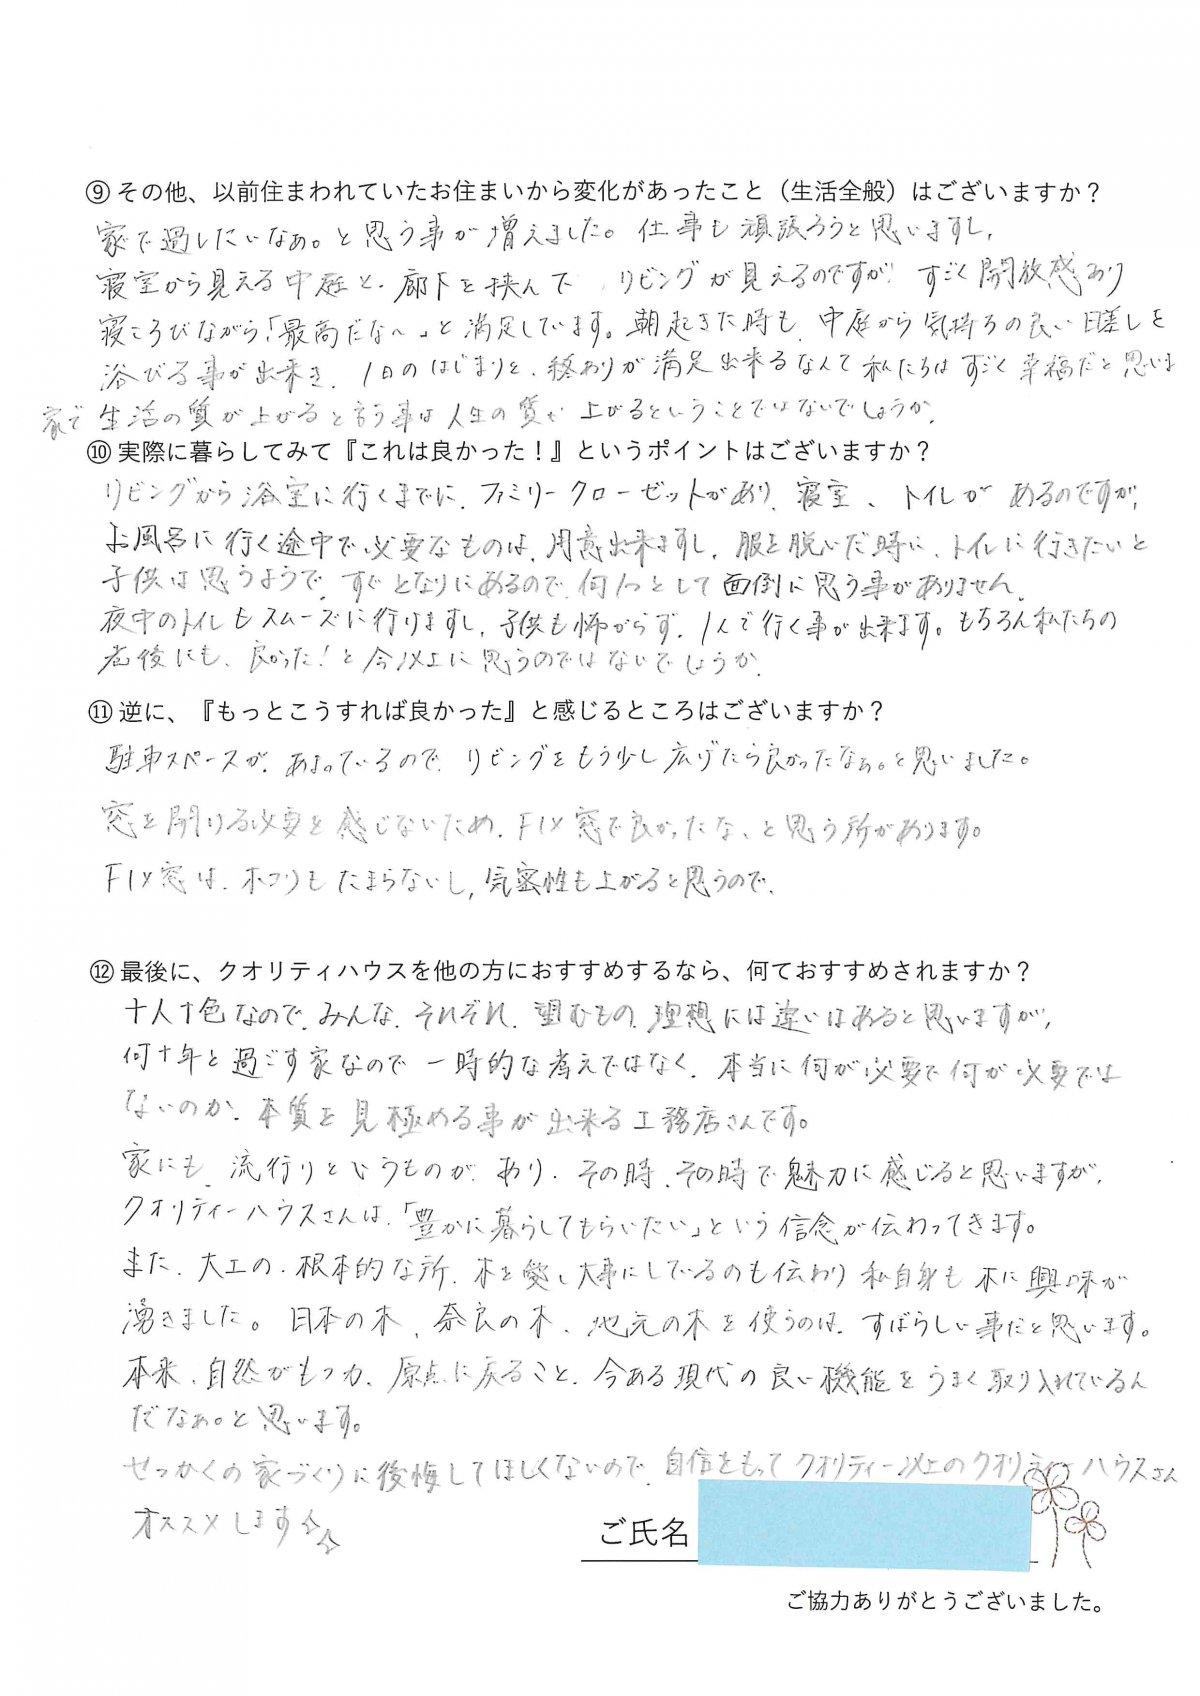 ⑨その他、以前住まわれていたお住まいから変化があったこと（生活全般）はございますか？
家で過したいなぁ。と思う事が増えました。仕事も頑張ろうと思いますし、
寝室から見える中庭と、廊下を挟んで、リビングが見えるのですが、すごく開放感あり
寝ころびながら「最高だな〜」と満足しています。朝起きた時も、中庭から気持ちの良い日差しを
浴びる事が出来き、1日のはじまりと、終わりが満足出来るなんて私たちはすごく幸福だと思いま
家で生活の質が上がると言う事は人生の質が上がるということではないでしょうか。
⑩実際に暮らしてみて『これは良かった！』というポイントはございますか？
リビングから浴室に行くまでに、ファミリークローゼットがあり、寝室、トイレがあるのですが、
お風呂に行く途中で必要なものは、用意出来ますし、服を脱いだ時に、トイレに行きたいと
子供は思うようで、すぐとなりにあるので、何1つとして面倒に思う事がありません。
夜中のトイレもスムーズに行けますし、子供も怖がらず、1人で行く事が出来ます。もちろん私たちの
老後にも、良かった！と今以上に思うのではないでしょうか。
⑪逆に、『もっとこうすれば良かった』と感じるところはございますか？
駐車スペースが、あまっているので、リビングをもう少し広げたら良かったなぁ。と思いました。
窓を開ける必要を感じないため、FIX窓で良かったな、と思う所があります。
FIX窓は、ホコリもたまらないし、気密性も上がると思うので、
⑫最後に、クオリティハウスを他の方におすすめするなら、何ておすすめされますか？
十人十色なので、みんな、それぞれ、望むもの、理想には違いはあると思いますが、
何十年と過ごす家なので一時的な考えではなく、本当に何が必要で何が必要では
ないのか、本質を見極める事が出来る工務店さんです。
家にも、流行りというものが、あり、その時、その時で魅力に感じると思いますが、
クオリティーハウスさんは、「豊かに暮らしてもらいたい」という信念が伝わってきます。
また、大工の、根本的な所、木を愛し大事にしているのも伝わり私自身も木に興味が
湧きました。日本の木、奈良の木、地元の木を使うのは、すばらしい事だと思います。
本来、自然がもつ力、原点に戻ること、今ある現代の良い機能をうまく取り入れているん
だなぁ。と思います。
せっかくの家づくりに後悔してほしくないので、自信をもってクオリティー以上のクオリティーハウスさん
オススメします☆☆
ご氏名
ご協力ありがとうございました。